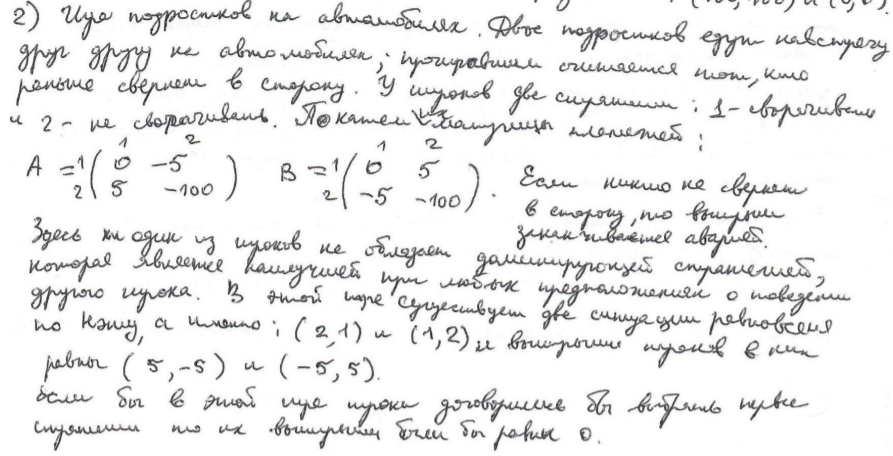 (100, 100) и (0, 0).
2) Игра подростков на автомобилях. Двое подростков едут навстречу
друг другу на автомобилях; проигравшим считается тот, кто
раньше свернет в сторону. У игроков две стратегии: 1 - сворачивать
и 2 - не сворачивать. Покажем их матрицы платежей:
1 2 1 2
A = 1 ( 0 -5 B = 1 ( 0 5
2 5 -100 ) 2 -5 -100 ) . Если никто не свернет
в сторону, то выигрыш
заканчивается аварией.
Здесь ни один из игроков не обладает доминирующей стратегией,
которая является наилучшей при любых предположениях о поведении
другого игрока. В этой игре существует две ситуации равновесия
по Нэшу, а именно: (2,1) и (1,2) и выигрыши игроков в них
равны (5, -5) и (-5, 5).
Если бы в этой игре игроки договорились бы выбрать первые
стратегии то их выигрыши были бы равны 0.